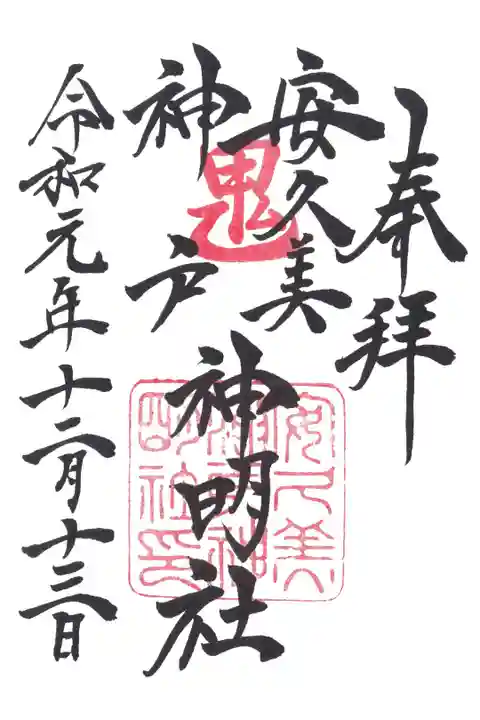 奉拝
安久美
神戸
神明社
鬼
安久美
神戸神
明社印
令和元年十二月十三日